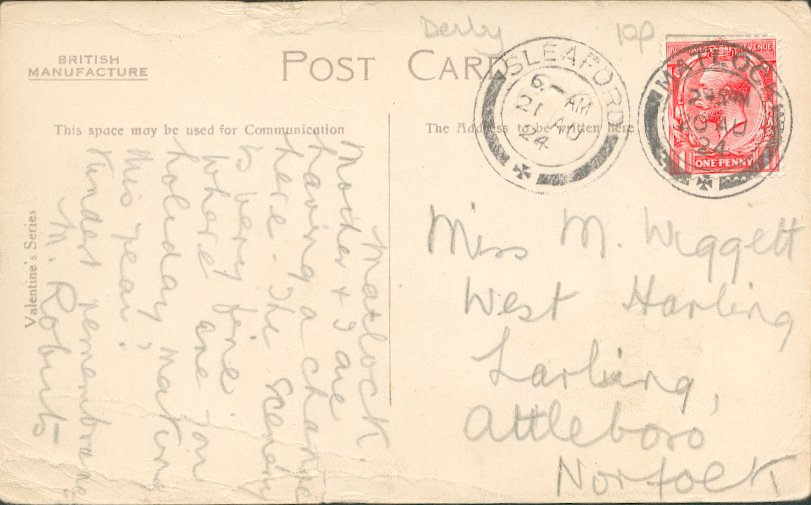 Derby
10p
BRITISH
MANUFACTURE
POST CARD
SLEAFORD
6 - AM
21 AU
24
MATLOCK
20 AU
24
REVENUE
ONE PENNY
This space may be used for Communication
The Address to be written here
Valentine's Series
Matlock.
Mother & I are
having a change
here. The scenery
is very fine.
Where are you
holiday making
this year?
Kindest remembrances
M. Roberts
Miss M. Wiggett
West Harling
Larling,
Attleboro
Norfolk